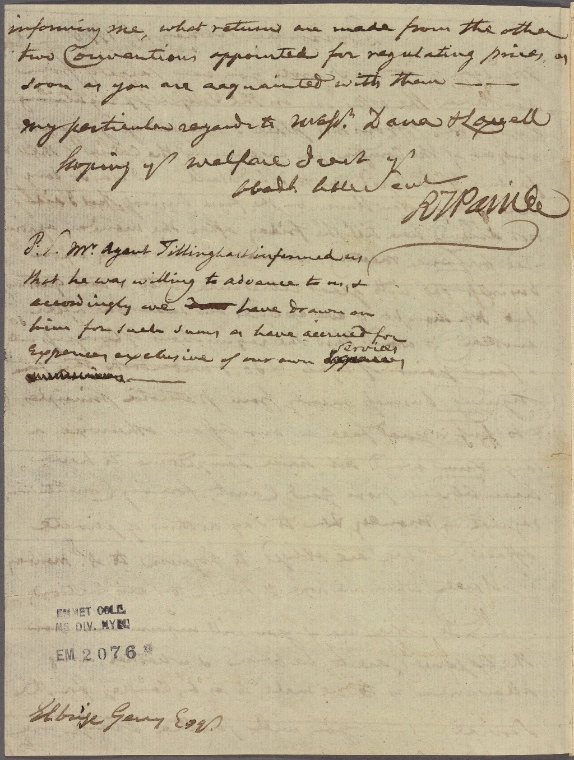 informing me, what returns are made from the other
two Conventions appointed for regulating prices, as
soon as you are acquainted with them ——
my particular regards to Messrs. Dana & Lowell
hoping yr welfare I rest yr
Obedt. hble Servt
RTPaine
P.S. Mr. Agent Tillinghast informed us
that he was willing to advance to us, &
accordingly we have drawn on
him for such sums as have accrued for
Expences exclusive of our own services
EMMET COLL.
MS DIV. NYPL
EM 2076
Elbrige Gerry Esqr.